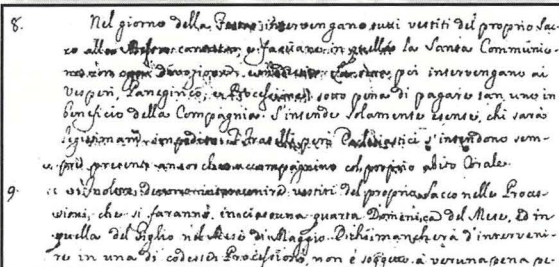 8. Nel giorno della Festa intervengano tutti vestiti del proprio Sac-
co alla Messa cantata, e facciano in quella la Santa Communio-
ne con ogni devozione, poi intervengano ai
Vesperi, Panegirico, e Processione sotto pena di pagare un uno in
beneficio della Compagnia. S'intende solamente esente, chi sarà
legitimamente impedito. I Fratelli però Ecclesiastici s'intendono sem-
pre presenti ancor che accompagnino col proprio abito Corale.
9. vestiti del proprio Sacco nelle Proces-
sioni, che si faranno in ciascuna quarta Domenica del Mese, ed in
quella del Giglio nel Mese di Maggio. Di chi mancherà d'interveni-
re in una di codeste Processioni, non è soggetto a veruna pena pe-